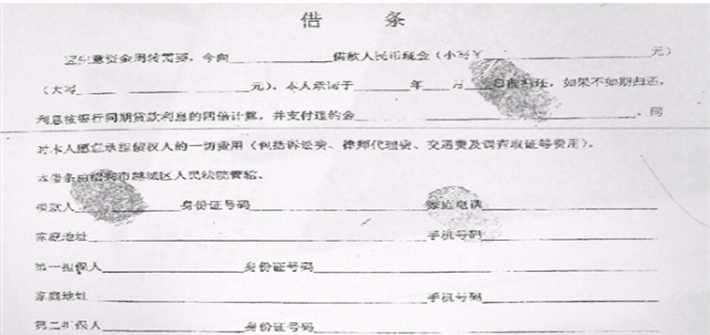 借 条
生意资金周转需要，今向____________借款人民币现金（小写￥____________元）
（大写____________元）。本人承诺于______年____月____日前归还，如果不如期归还，
利息按银行同期贷款利息的四倍计算，并支付违约金____________。同
时本人愿意承担债权人的一切费用（包括诉讼费、律师代理费、交通费及调查取证等费用）。
本借条由绍兴市越城区人民法院管辖。
借款人____________身份证号码____________家庭电话____________
家庭地址____________手机号码____________
第一担保人____________身份证号码____________
家庭地址____________手机号码____________
第二担保人____________身份证号码____________